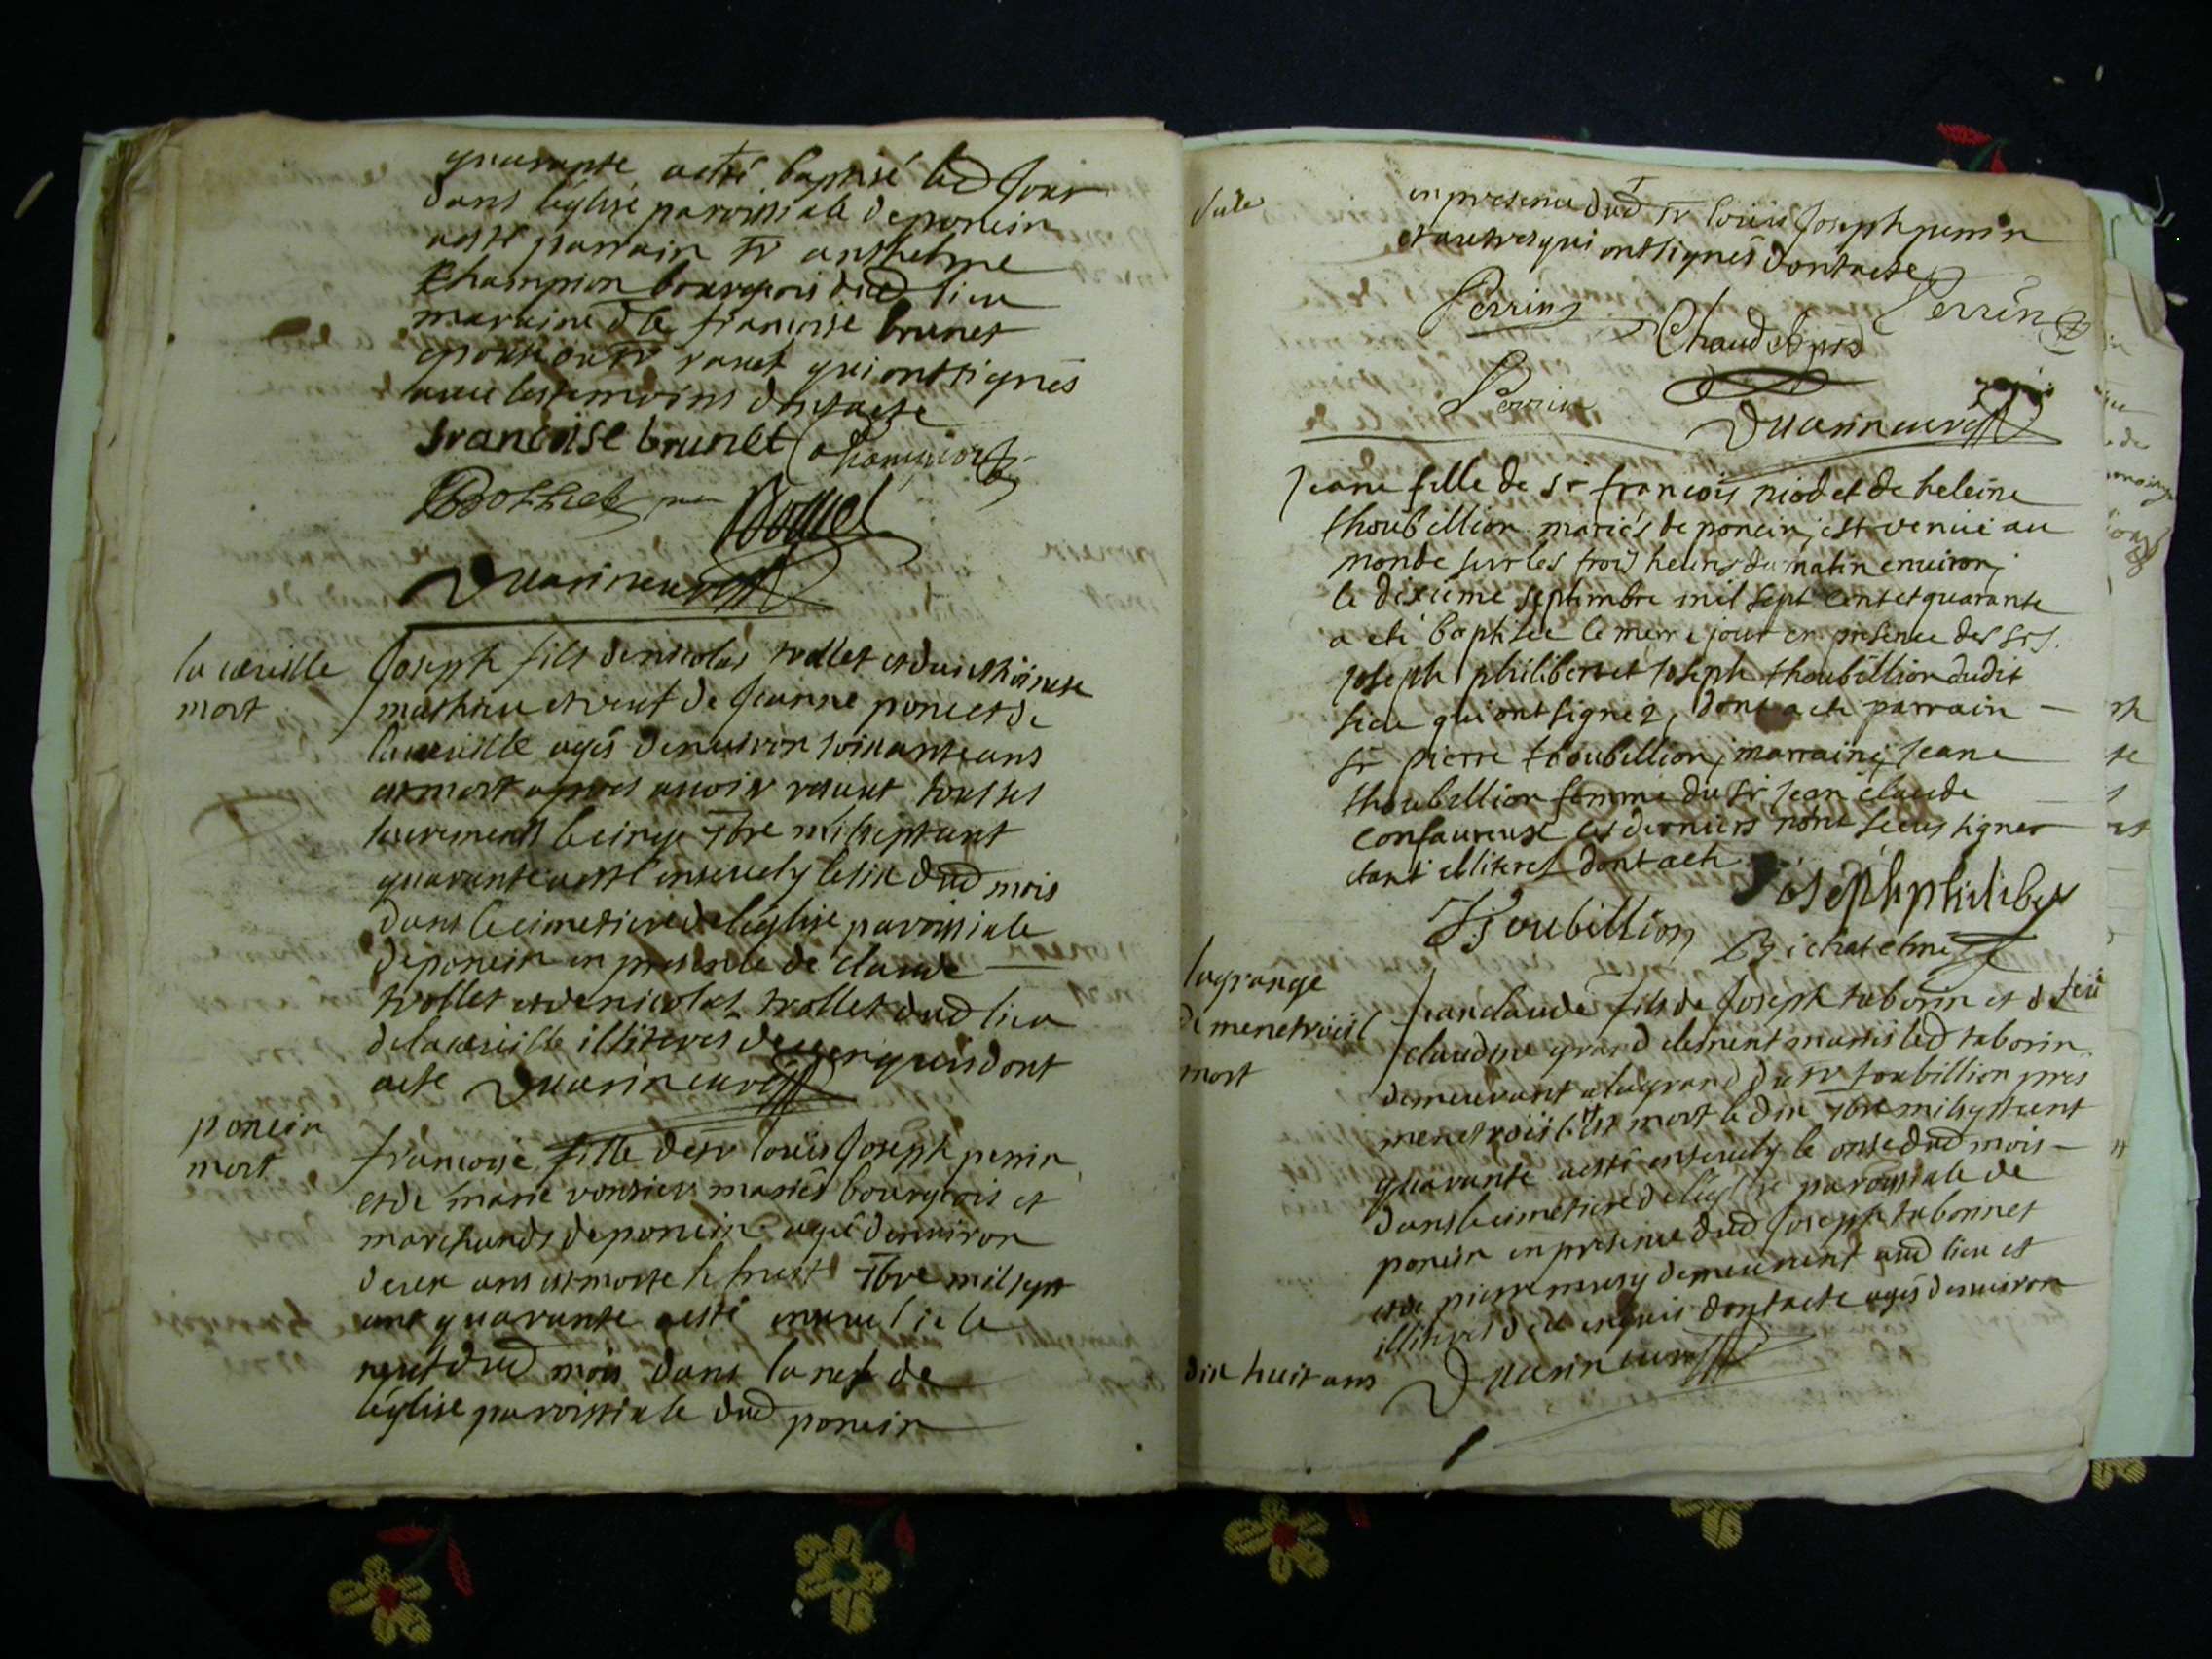 quarante aesté baptisé led Jour
dans léglise paroissiale deponcin
aesté parrain sr anthelme
Champion bourgeois dud lieu
maraine dlle francoise brunet
epouse dusr ravet qui ont signés
avec lestemoins dontacte
francoise brunet Champion
Bottier
Duarin curé
la cœuille
mort
Joseph fils denicolas trollet et
mathieu et veuf de Jeanne poncet de
lacœuille agés denuiron soixante ans
est mort apres auoir receut tous ses
sacrements lecinq 7bre milseptcent
quarante aesté enseuely lesix dud mois
dans lecimetiere deléglise paroissiale
deponcin en presence de claude
trollet et de nicolas trollet dud lieu
delacœuille illiteres deuenquis dont
acte Duarin curé
poncin
mort
francoise fille desr loüis Joseph perrin
et de marie vousier mariés bourgeois et
marchands deponcin agée denuiron
deux ans est morte le huit 7bre mil sept
cent quarante aesté enseuelie le
neuf dud mois dans la nef de
léglise paroissiale dud poncin
en presence dud sr loüis Joseph perrin
et autres qui ont signés dont acte
Perrin Chaud Perrin
Perrin
Duarin curé
Jeane fille de sr francois niodet de heleine
thoubillion mariés de poncin, est venüe au
monde sur les trois heures du matin environ,
le dixieme septembre mil sept cent et quarante
a eté baptisée le meme jour en presence des srs.
joseph philibert et joseph thoubillion dudit
lieu qui ont signez, dont a eté parrain
sr pierre thoubillion, marraine, jeane
thoubillion femme du sr jean claude
confavreux ces derniers n'ont sceus signer
etant illiteres dont acte
Joseph philibert
Thoubillion Bichatelme
lagrange
de menetrüeil
mort
Jean claude fils de Joseph taborin et de feüe
claudine grand clement mariés led taborin
demeurant alagrand du sr toubillion pres
menetroüil est mort le dix 7bre milseptcent
quarante aesté enseuely le onse dud mois
dans lecimetiere deléglise paroissiale de
poncin en presence dud Joseph taborin et
et de pierre demeurent aud lieu et
illiteres deu enquis dont acte agés denuiron
dix huit ans Duarin curé